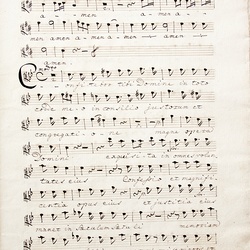 amen amen a
men amen amen a men amen
Confitebor tibi Domine in toto
corde meo in consilio justorum et
congregatione magna opera
Domini exquisita in omnes volun
tates ejus Confessio et magnifi
centia opus ejus et justitia ejus
manet in saeculum saeculi memoriam